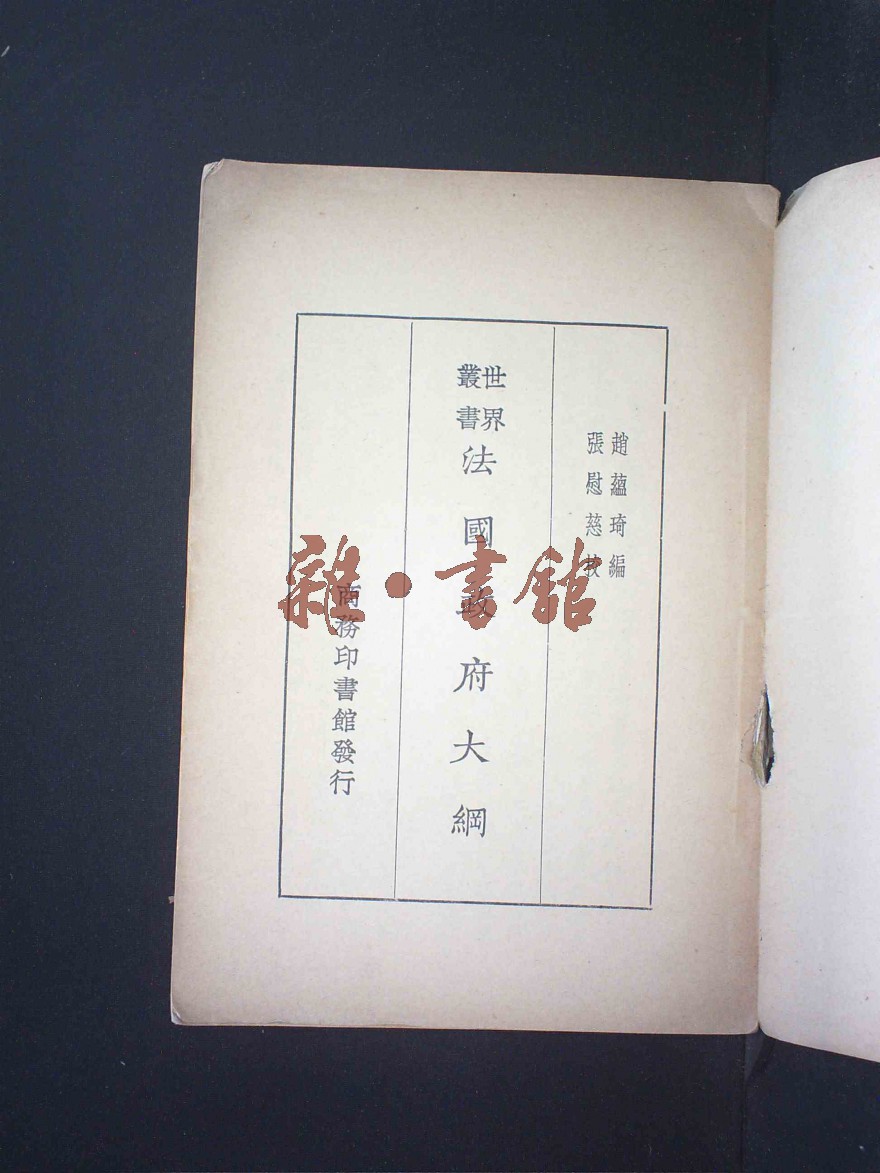 趙蘊琦編
張慰慈校
世界
叢書
法國政府大綱
商務印書館發行
雜·書館